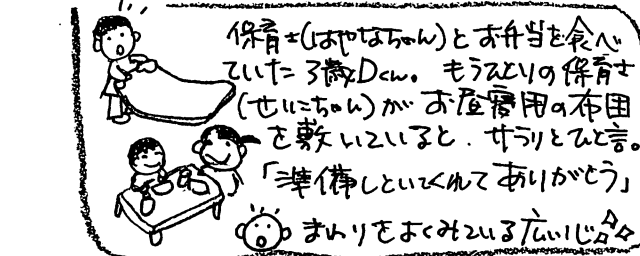 保育士(はやなちゃん)とお弁当を食べ
ていた3歳Dくん。もうひとりの保育士
(せいこちゃん)がお昼寝用の布団
を敷いていると、サラリとひと言。
「準備しといてくれてありがとう」
まわりをよくみている広い心